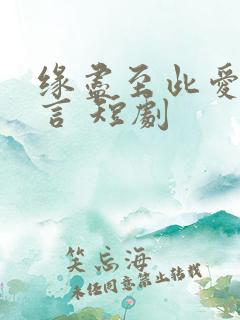 缘尽至此爱
言 短劇
笑忘海
未经同意禁止转载